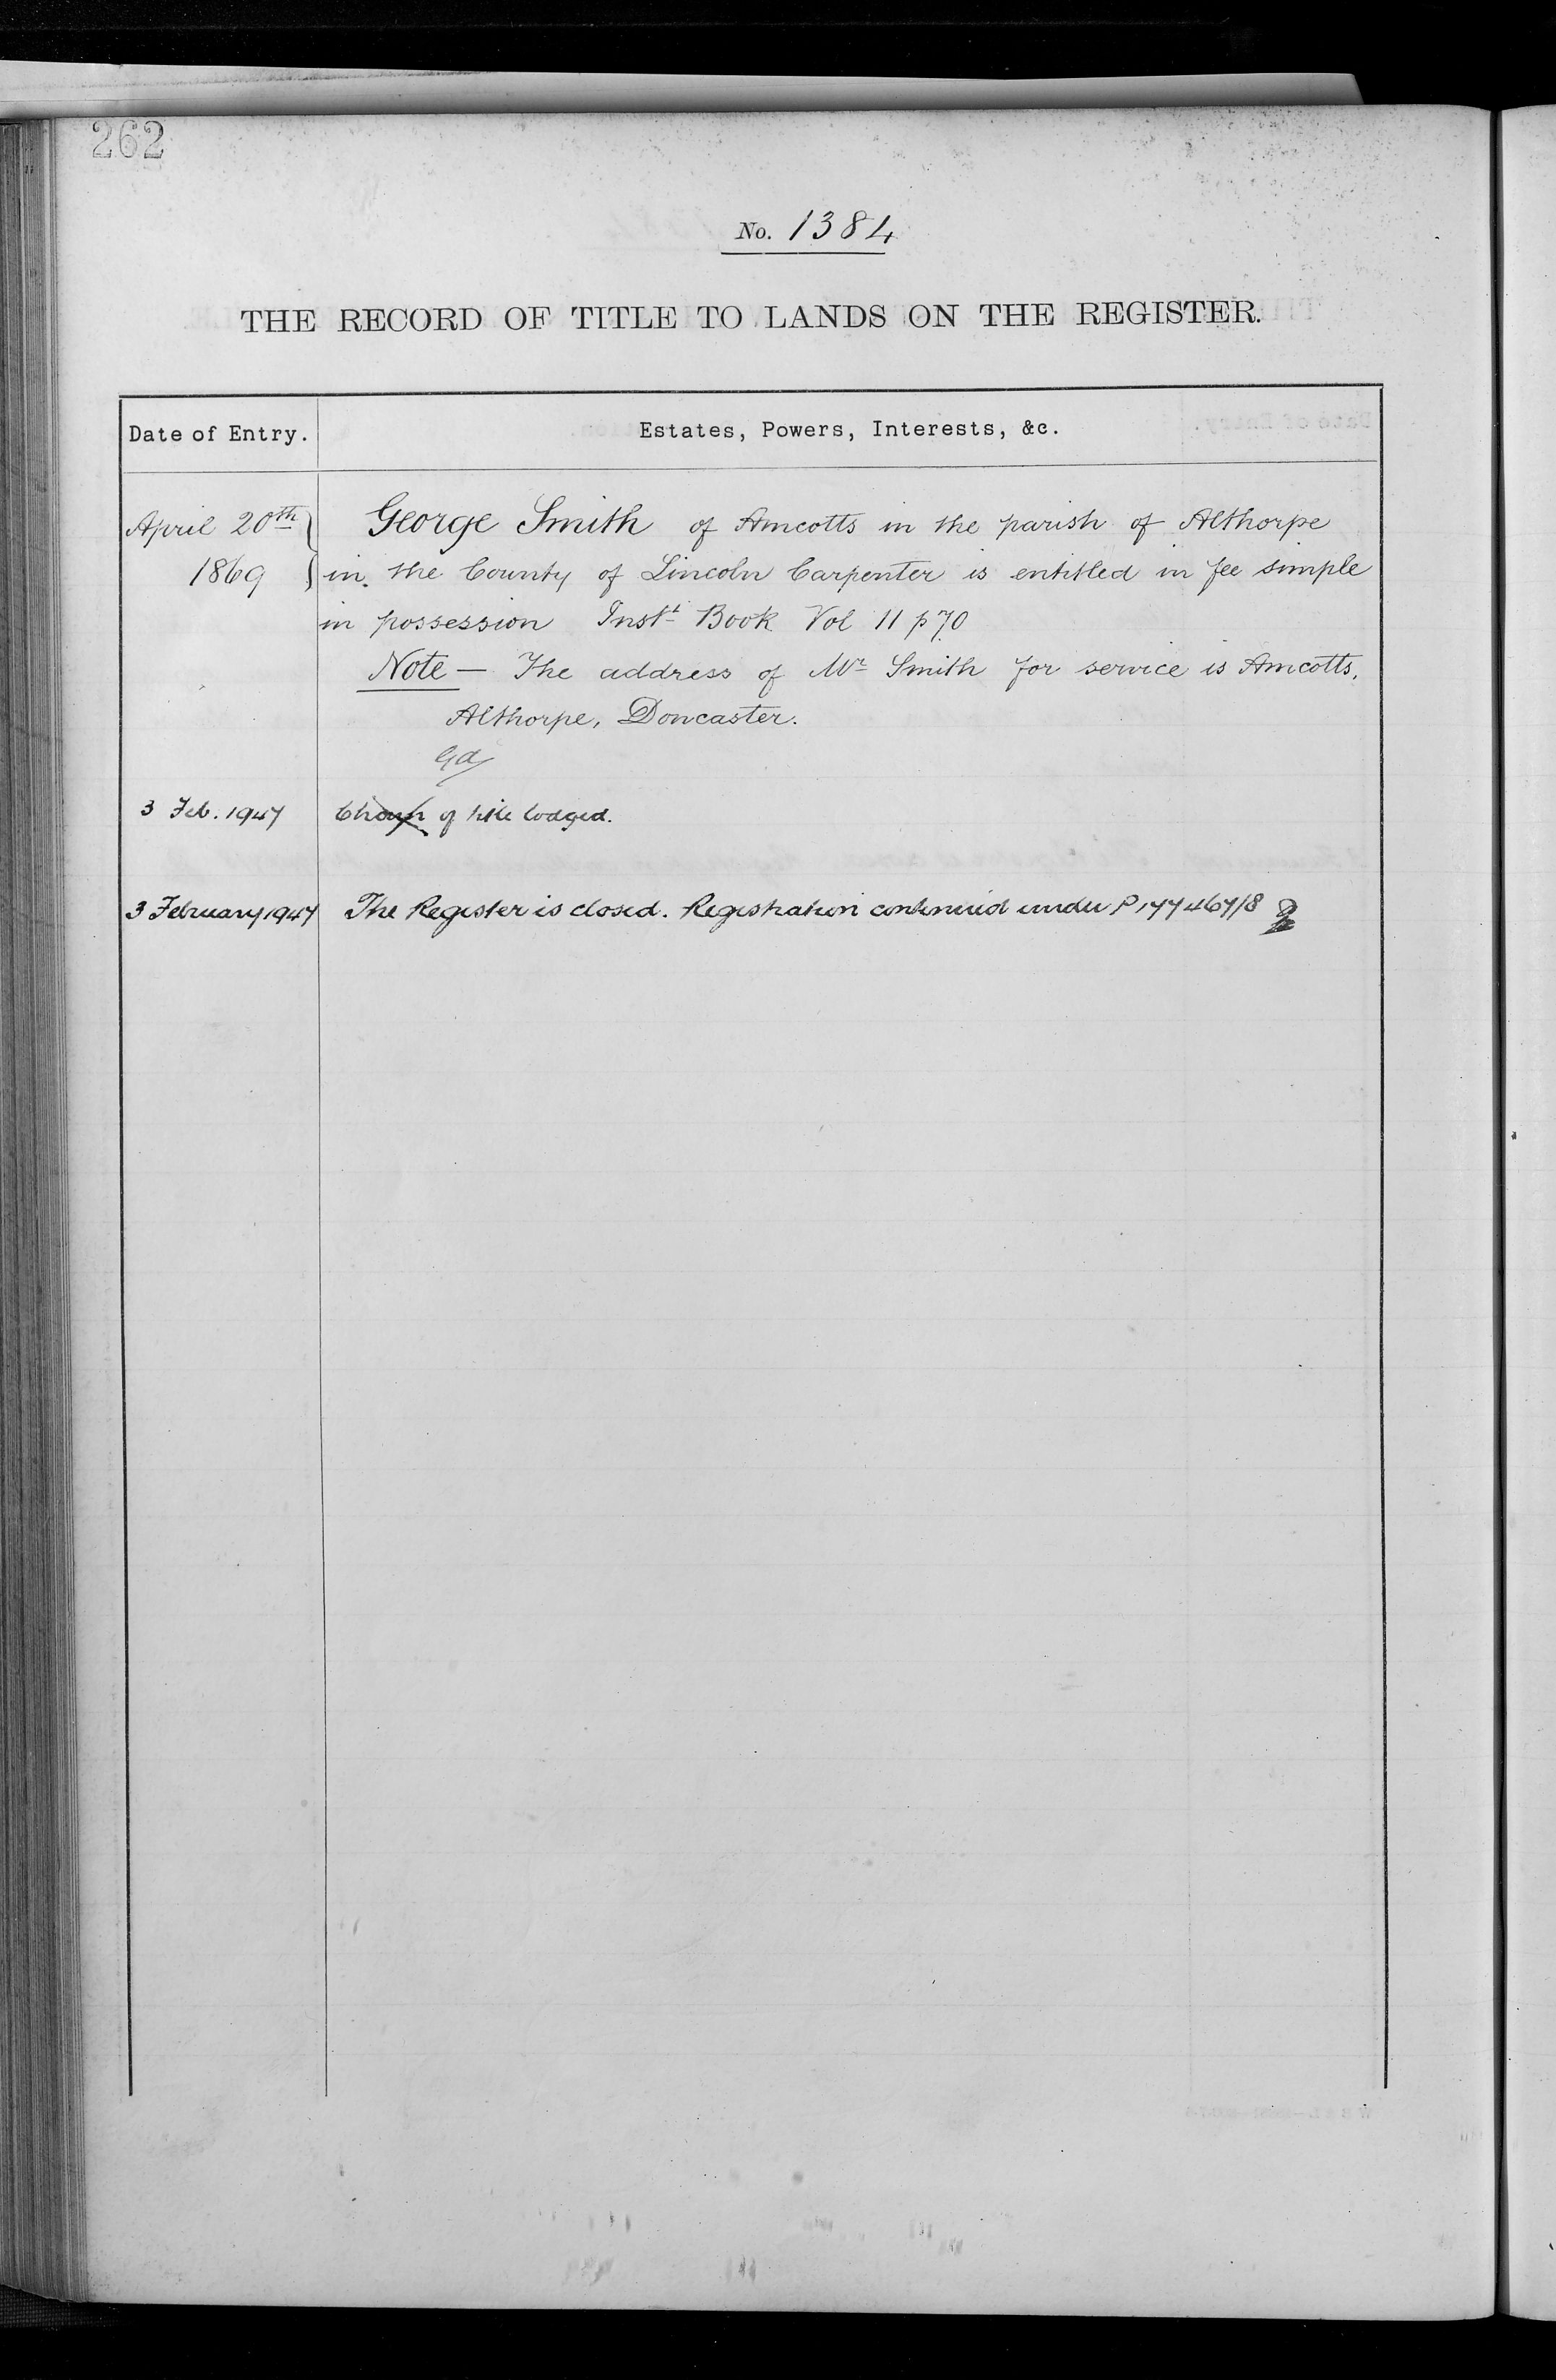 262
No. 1384
THE RECORD OF TITLE TO LANDS ON THE REGISTER.
Date of Entry. Estates, Powers, Interests, &c.
April 20th George Smith of Amcotts in the parish of Althorpe
1869 in the County of Lincoln Carpenter is entitled in fee simple
in possession Instt Book Vol 11 p 70
Note — The address of Mr Smith for service is Amcotts,
Althorpe, Doncaster.
3 Feb. 1947 of title lodged.
3 February 1947 The Register is closed. Registration continued under P177467/8